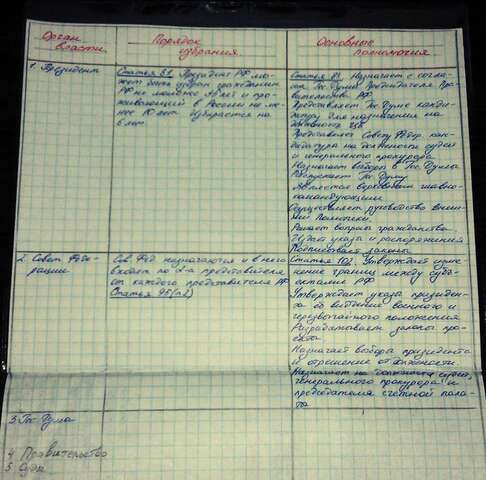 Орган власти
Порядок избрания
Основные полномочия
1. Президент
Статья 81 Президент РФ мо-
жет быть избран гражданин
РФ не моложе 35 лет и про-
живающий в России не ме-
нее 10 лет. Избирается на
6 лет
Статья 83. Назначает с согла-
сия Гос Думы Председателя Пра-
вительства РФ.
Представляет Гос Думе канди-
датуру для назначения на
должность ЦБ
Представляет Совету Федер. кан-
дидатура на должности судей
и генерального прокурора
Назначает выборы в Гос Думы
Распускает Гос Думу
Является верховным главно-
командующим
Осуществляет руководство внеш-
ней политики.
Решает вопросы гражданства.
Издаёт указа и распоряжения
Подписывает законы
2. Совет Феде-
рации
Сов Фед назначаются и в него
входят по 2-а представителя
от каждого представителя РФ
Статья 95(п2)
Статья 102. Утверждает изме-
нение границ между субъ-
ектами РФ
Утверждает указа президен-
та о введение военного и
чрезвычайного положения
Разрабатывает законы про-
екта
Назначает выбора президента
и отрешение от должности.
Назначает на должности судей,
генерального прокурора и
председателя счетной пала-
ты
3 Гос Дума
4 Правительство
5 Суды